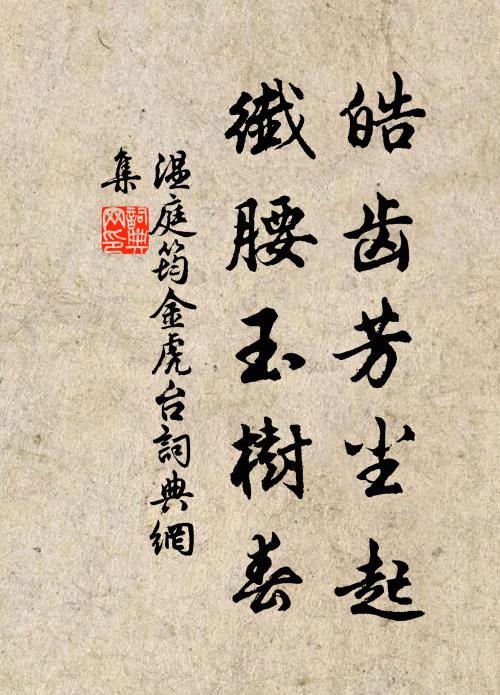 皓齿芳尘起
纖腰玉樹春
温庭筠金虎台詞典網
集
詞典网印